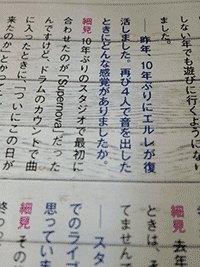 しない年でも遊びに行くようにな
ました。
──昨年、10年ぶりにエルレが復
活しました。再び4人で音を出した
ときにどんな感覚がありましたか。
細見 10年ぶりのスタジオで最初に
合わせたのが、「Supernova」だった
んですけど、ドラムのカウントで曲
に入ったときに、「ついにこの日が
来たのか」とかって
細見 去年
ときは、そ
てませんで
スタ
でのライブ
思っていま
細見 その
終わっ